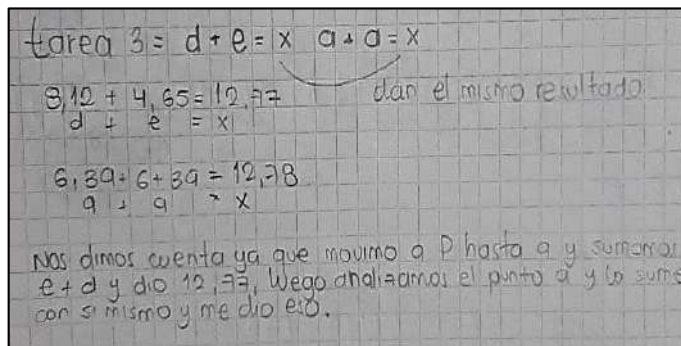 tarea 3 = d + e = x a + a = x
8,12 + 4,65 = 12,77 dan el mismo resultado.
d + e = x
6,39 + 6 + 39 = 12,78
a + a = x
Nos dimos cuenta ya que movimo a P hasta a y sumamos
e + d y dio 12,77, luego analizamos el punto a y lo sume
con si mismo y me dio eso.